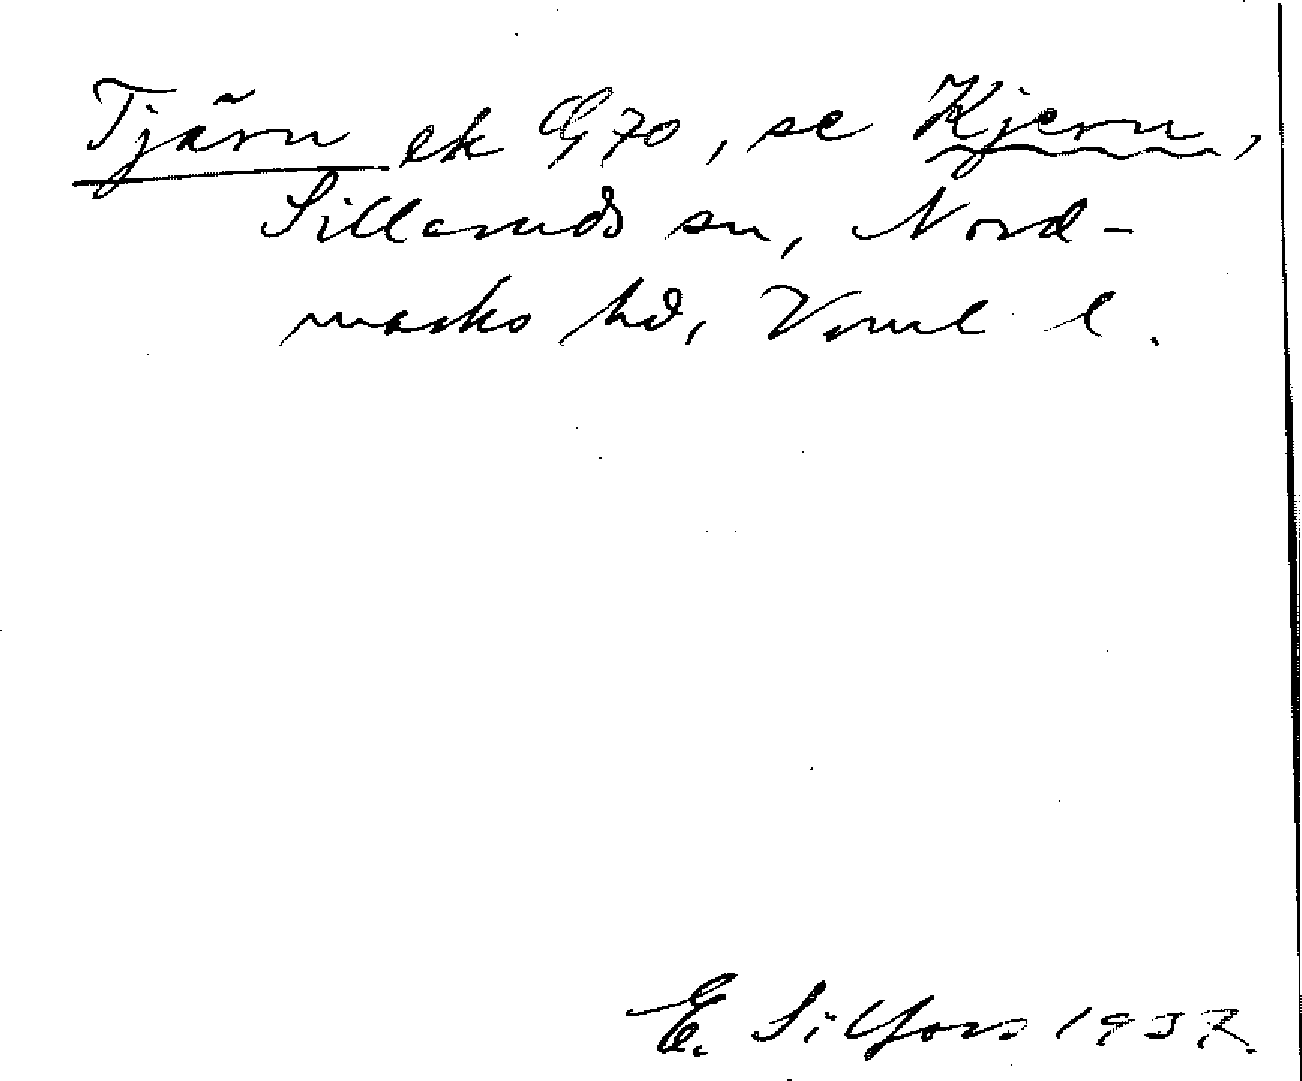 Tjärn ek G70, se Kjern,
Silleruds sn, Nord-
marks hd, Vrml l.
E. Silfors 1937.